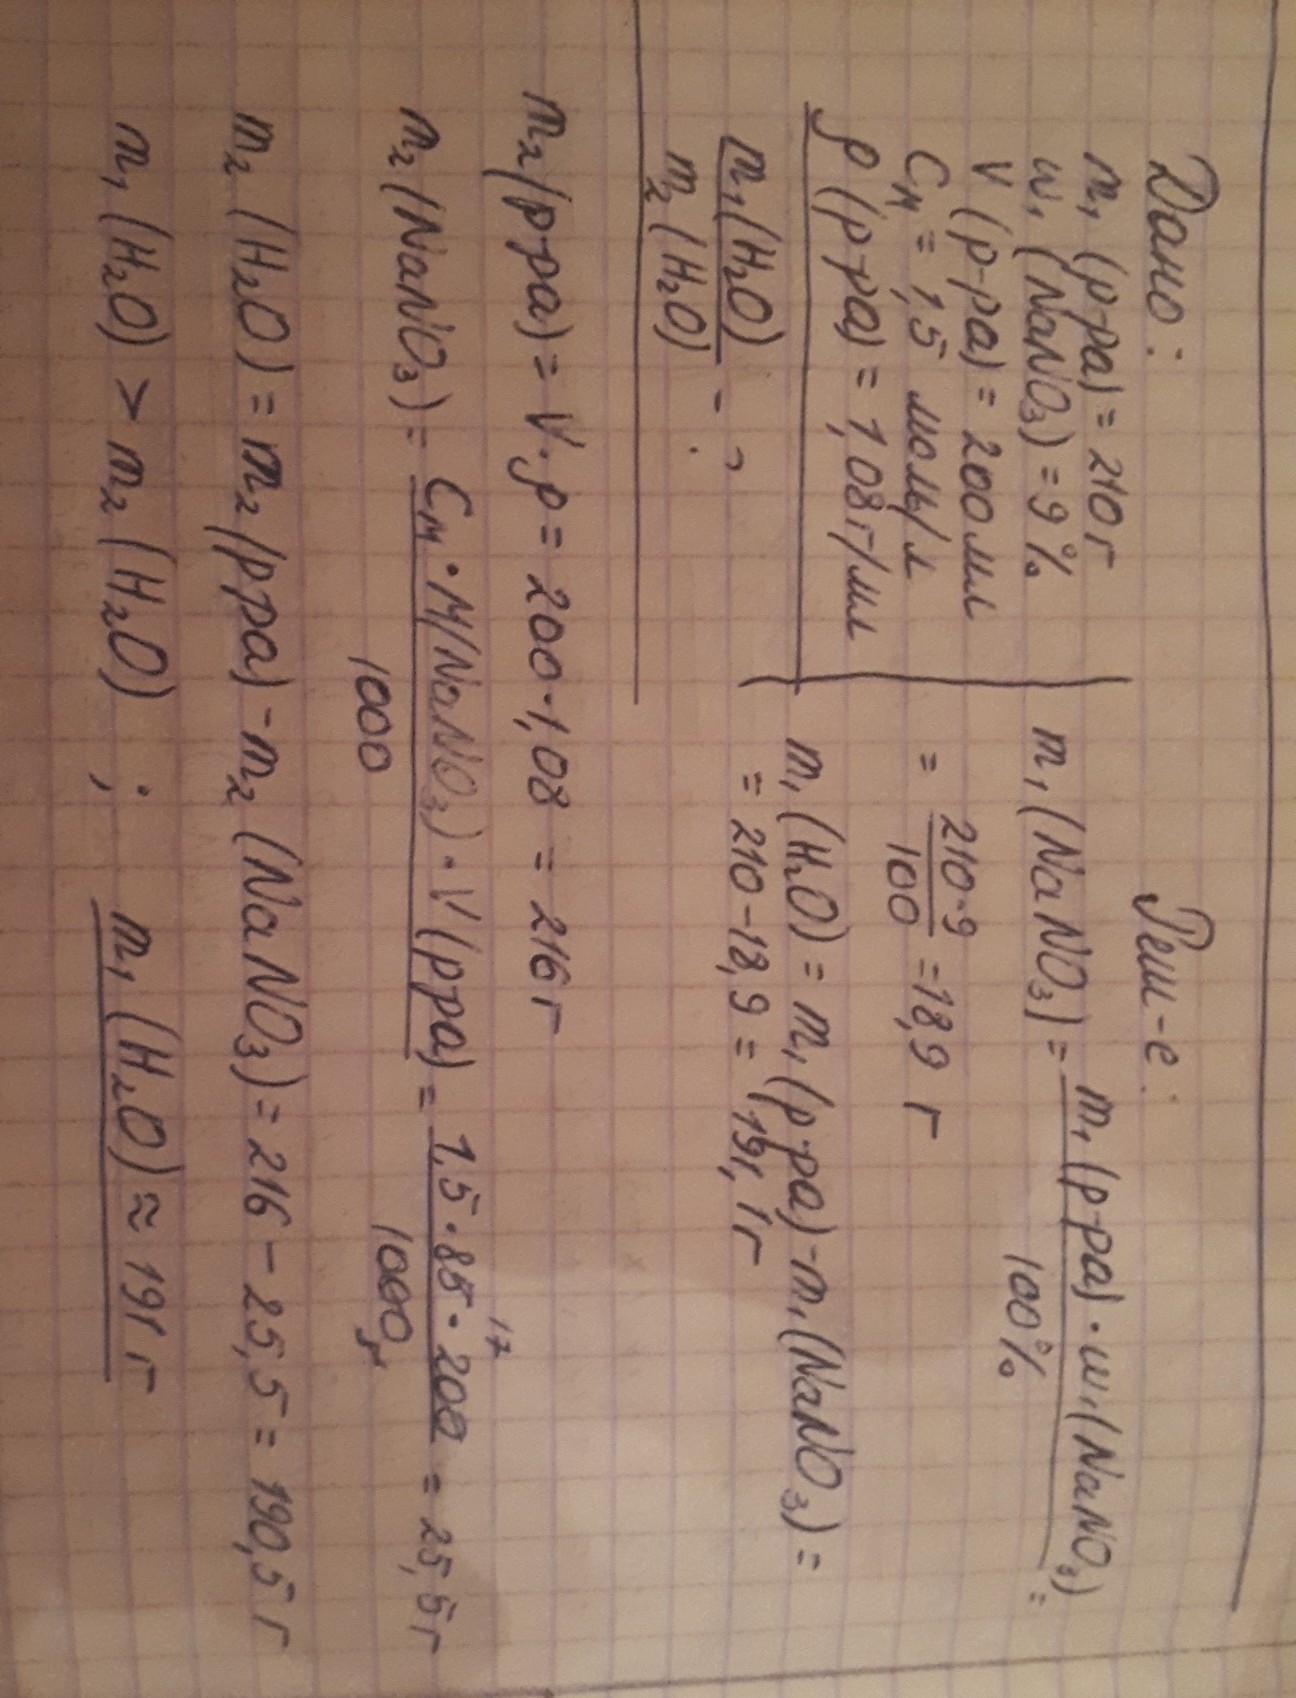 Дано:
m₁ (р-ра) = 210 г
w₁ (NaNO₃) = 9 %
V (р-ра) = 200 мл
Cм = 1,5 моль/л
ρ (р-ра) = 1,08 г/мл
m₁ (H₂O)
m₂ (H₂O) - ?
Реш-е:
m₁ (NaNO₃) = m₁ (р-ра) · w₁ (NaNO₃) / 100% =
= 210·9 / 100 = 18,9 г
m₁ (H₂O) = m₁ (р-ра) - m₁ (NaNO₃) =
= 210 - 18,9 = 191,1 г
m₂ (р-ра) = V·ρ = 200·1,08 = 216 г
m₂ (NaNO₃) = Cм · M(NaNO₃) · V (р-ра) / 1000 = 1,5 · 85 · 200 / 1000 = 25,5 г
17
m₂ (H₂O) = m₂ (р-ра) - m₂ (NaNO₃) = 216 - 25,5 = 190,5 г
m₁ (H₂O) > m₂ (H₂O) ; m₁ (H₂O) ≈ 191 г